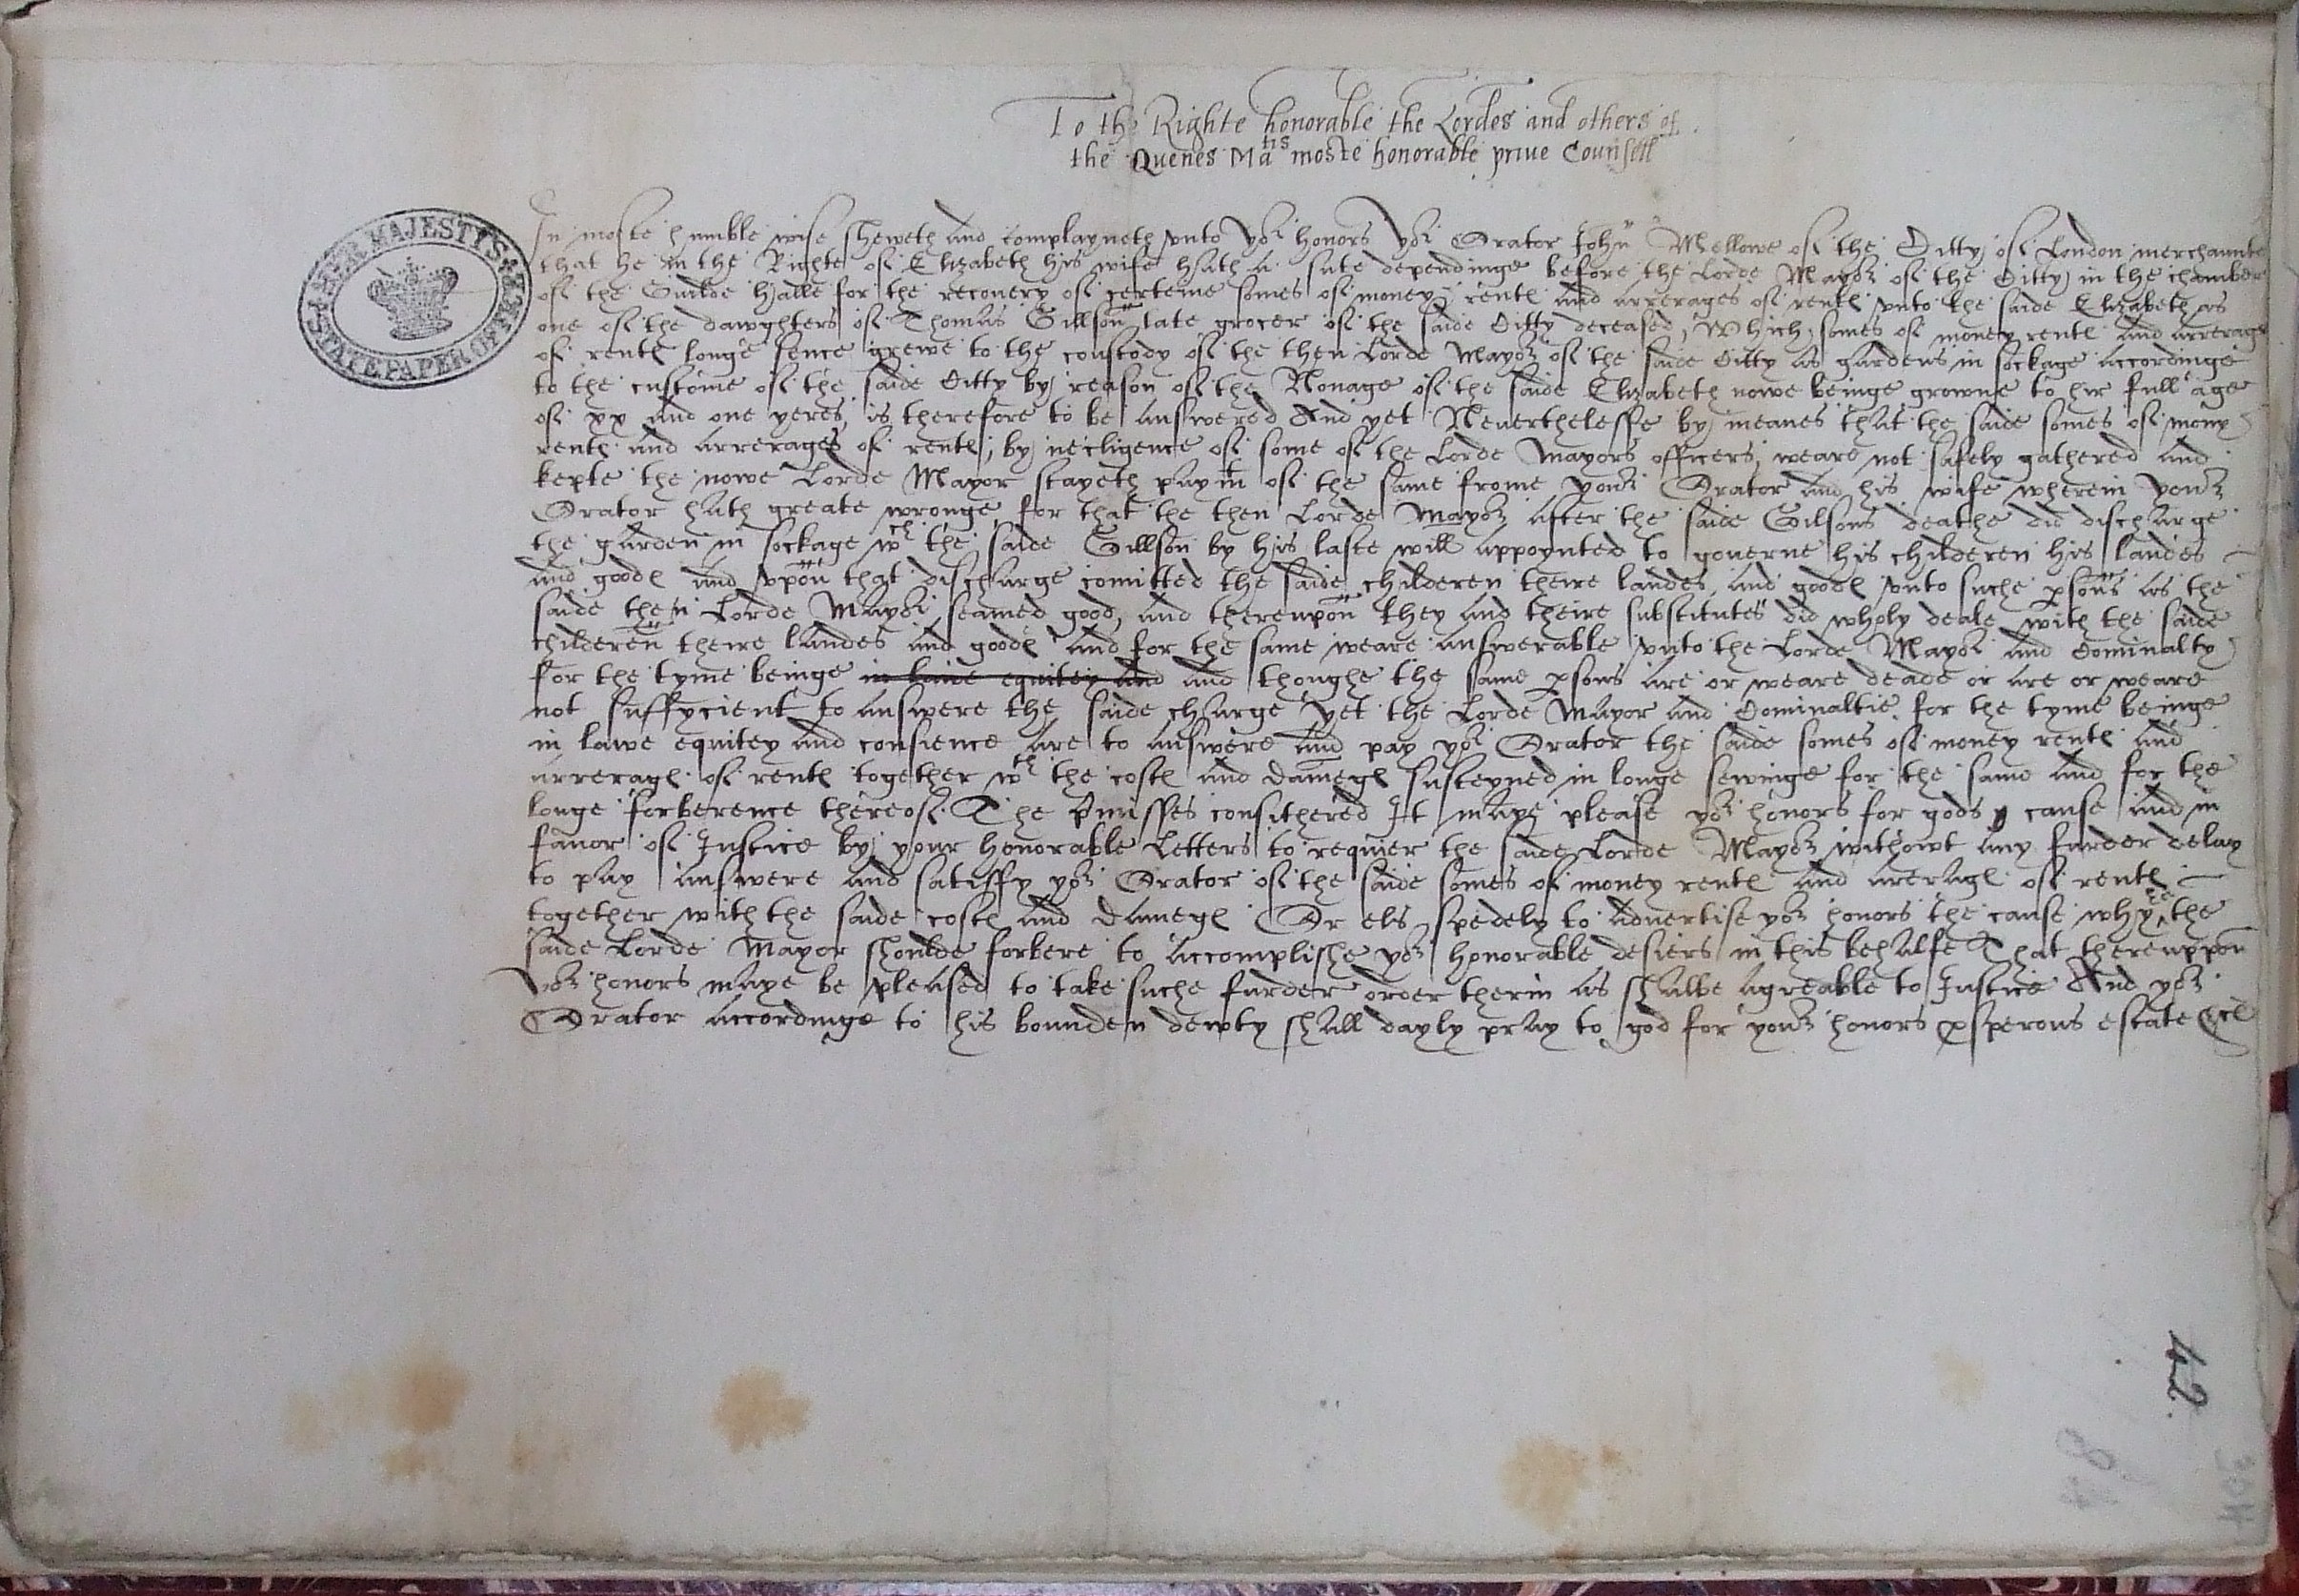 To the Righte honorable the Lordes and others of
the Quenes Matis moste honorable priue Counsell
HER MAJESTY'S
STATE PAPER OFFICE
In moste humble wise sheweth and complayneth vnto yor honors yor Orator John Mellowe of the Citty of London merchaunte
that he in the Righte of Elizabeth his wife hath a sute dependinge before the Lorde Mayor of the Citty in the chamber
of the Guilde Halle for the recouery of certeine somes of money rentes and arrerages of rentes vnto the saide Elizabeth as
one of the dawghters of Thomas Gillson late grocer of the saide Citty deceased, Which somes of money rentes and arrerages
of rentes longe sence grewe to the custody of the then Lorde Mayor of the saide Citty as gardens in sockage accordinge
to the custome of the saide Citty by reason of the Nonage of the saide Elizabeth nowe beinge growne to hir full age
of xx and one yeres, is therefore to be answered And yet Neuerthelesse by meanes that the saide somes of mony
rentes and arrerages of rentes, by necligence of some of the Lorde Mayors officers, weare not safely gathered and
kepte the nowe Lorde Mayor stayeth paymt of the same frome your Orator and his wife wherein your
Orator hath greate wronge, for that the then Lorde Mayor after the saide Gilsons deathe did discharge
the garden in sockage wch the saide Gillson by his laste will appoynted to gouerne his childeren his landes
and goodes and vpon that discharge comitted the saide childeren theire landes and goodes vnto suche psons as the
saide then Lorde Mayor seamed good, and therevpon they and theire substitutes did wholy deale with the saide
childeren theire landes and goodes and for the same weare answerable vnto the Lorde Mayor and Cominalty
for the tyme beinge in lawe equitey and and thoughe the same psons are or weare deade or are or weare
not suffycient to answere the saide charge yet the Lorde Mayor and Cominaltie for the tyme beinge
in lawe equitey and consience are to answere and pay yor Orator the saide somes of money rentes and
arrerages of rentes together wth the costes and dameges susteyned in longe sewinge for the same and for the
longe forberence thereof. The pmisses consithered It maye please yor honors for gods cause and in
fauor of Justice by your honorable Letters to requier the saide Lorde Mayor withowt any furder delay
to pay answere and satisfy yor Orator of the saide somes of money rentes and arerages of rentes
together with the saide costes and dameges Or els spedely to aduertise yor honors the cause why he the
saide Lorde Mayor shoulde forbere to accomplishe yor honorable desiers in this behalfe That therevppon
yor honors maye be pleased to take suche furder order therin as shalbe agreable to Justice And yor
Orator accordinge to his bounden dewty shall dayly pray to god for your honors psperous estate &c
42